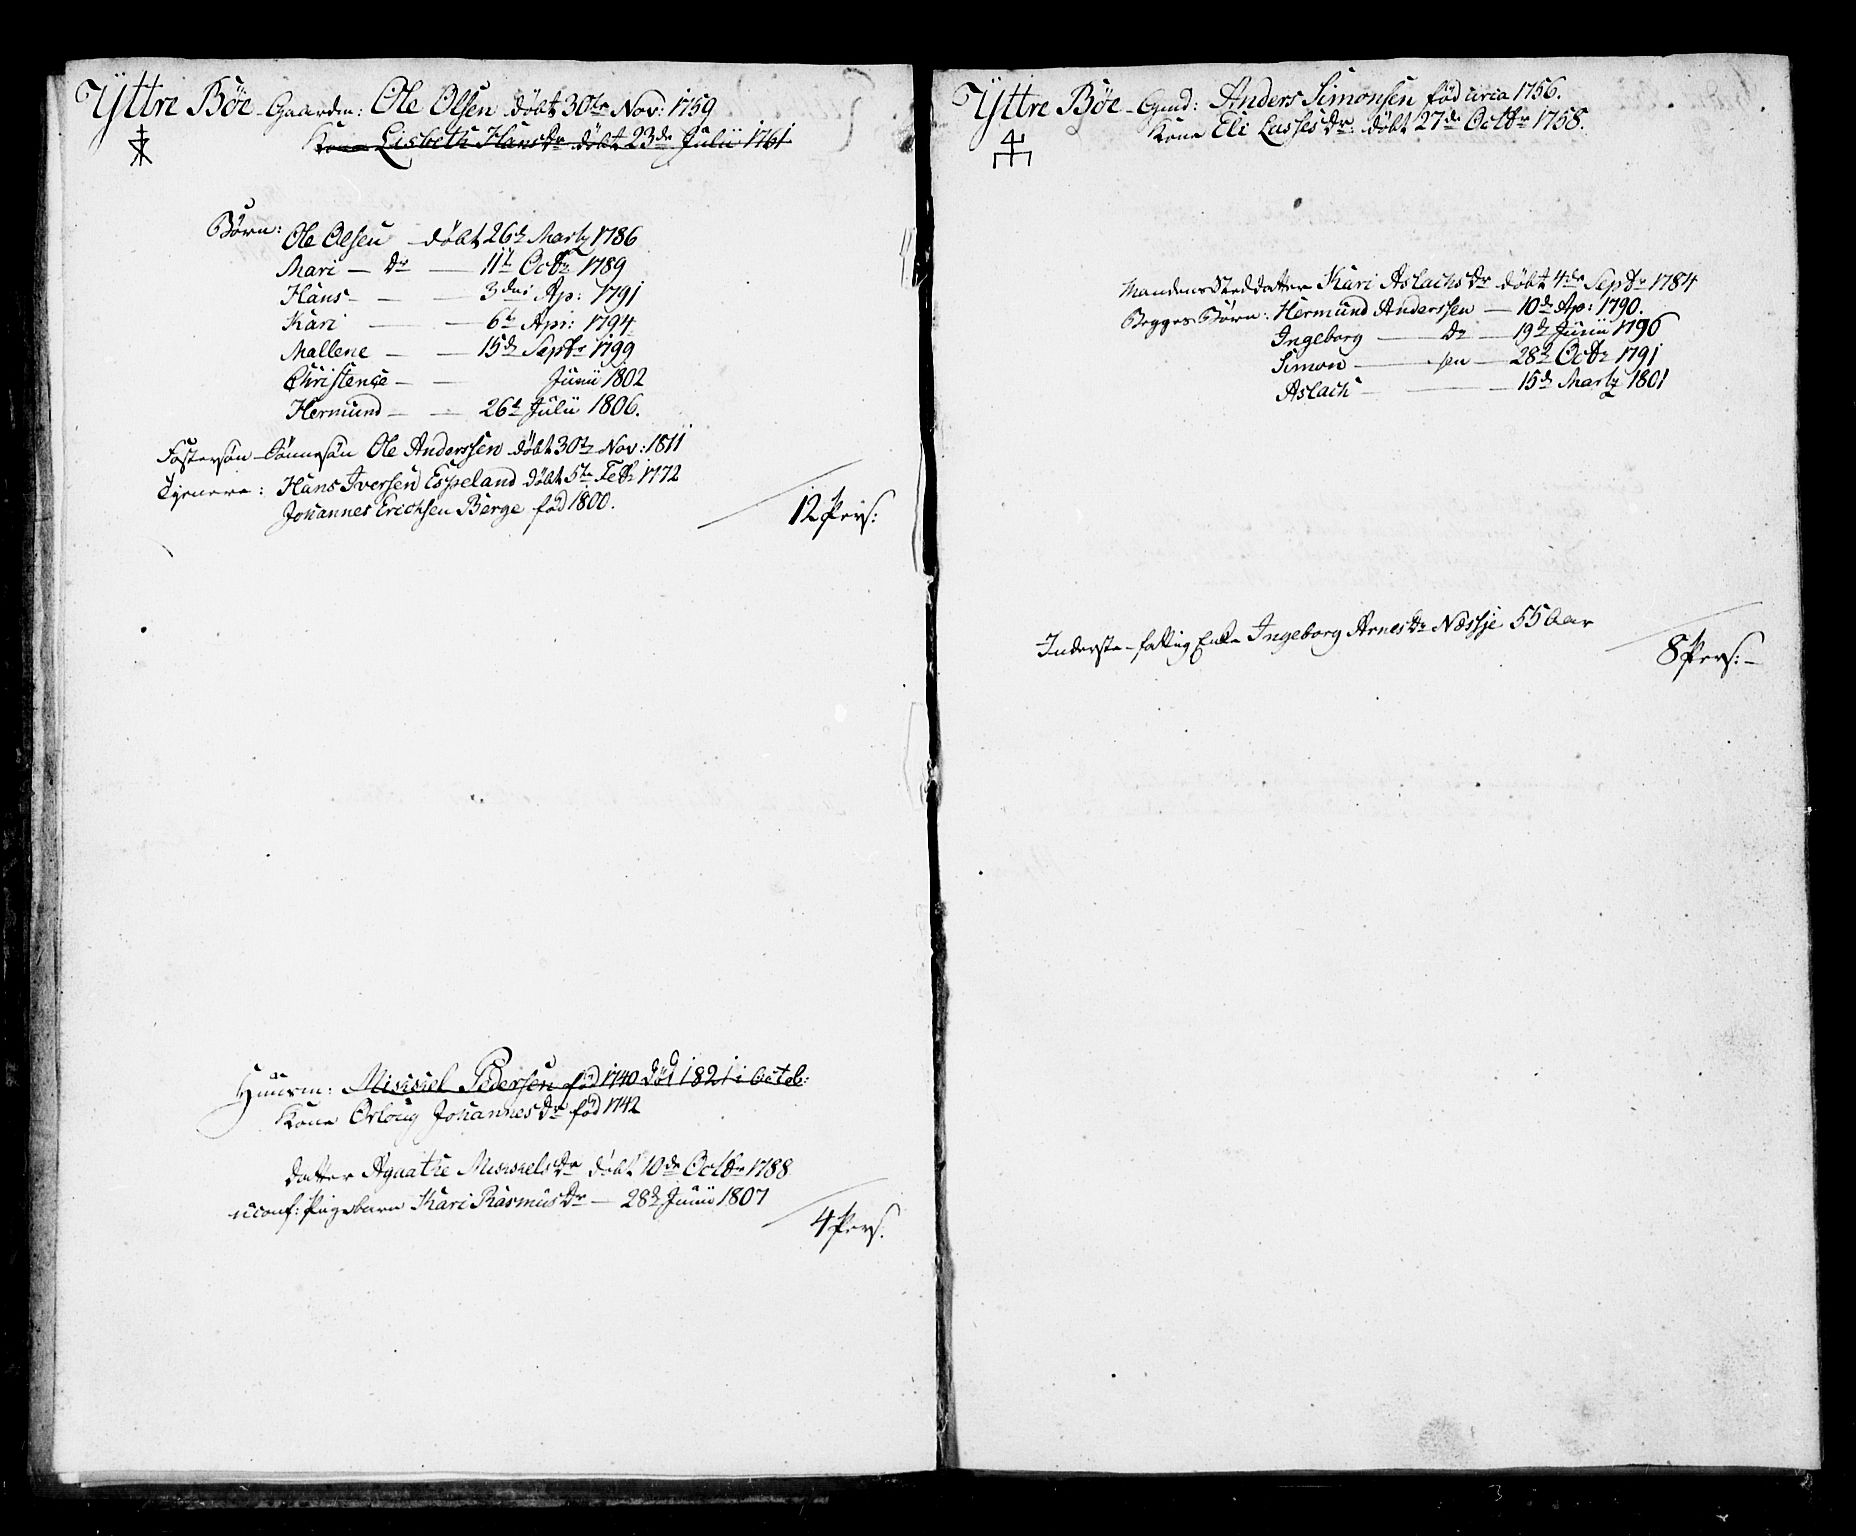 Yttre Bøe - Gaardm: Ole Olsen døbt 30te Nov: 1759
Kone Lisbeth Hansdr døbt 23de Julii 1761
Børn: Ole Olsen døbt 26de Martz 1786
Mari — dr — 11te Octbr 1789
Hans — — 3die Ap: 1791
Kari — — 6te Apr: 1794
Mallene — — 15de Septbr 1799
Christence — — Junii 1802
Hermund — — 26de Julii 1806.
Fostersøn - Sønnesøn Ole Anderssen døbt 30te Nov: 1811
Tjenere: Hans Iversen Espeland døbt 5te Feb: 1772
Johannes Erichsen Berge fød 1800.
12 Pers:
Huusm: Mickel Pedersen fød 1740 død 1821 i Octob:
Kone Orloug Johannesdr fød 1742
datter Aguathe Mickelsdr døbt 10de Octbr 1788
uconf: Pigebarn Kari Rasmusdr — 28de Junii 1807
4 Pers.
Yttre Bøe - Gmd: Anders Simonsen fød circa 1756.
Kone Eli Lassesdr: døbt 27de Octbr 1758.
Mandens Steddatter Kari Aslachsdr døbt 4de Septbr 1784
Begges Børn: Hermund Anderssen — 10de Ap: 1790.
Ingeborg — dr — 19de Junii 1796
Simon — sen — 28de Octbr 1791
Aslach — — 15de Martz 1801
Inderste - fattig Enke Ingeborg Arnesdr Næssje 55 Aar
8 Pers: —